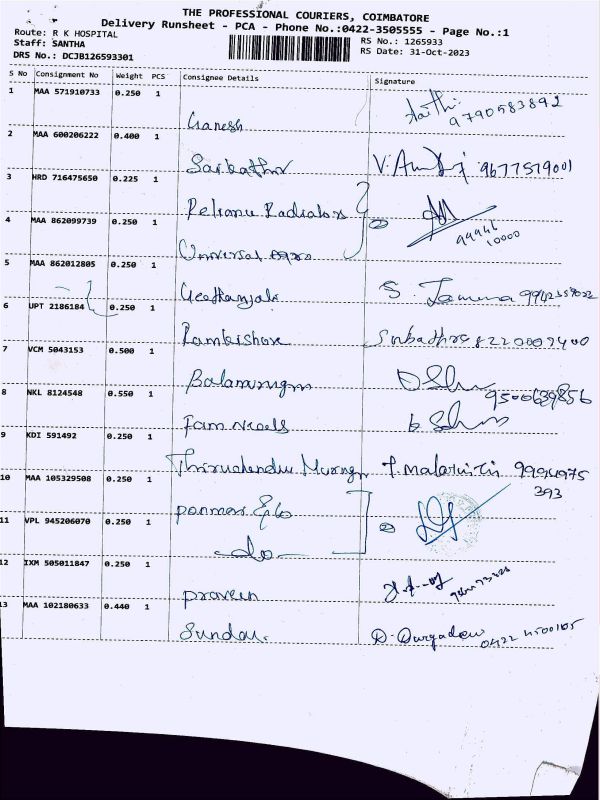 THE PROFESSIONAL COURIERS, COIMBATORE
Delivery Runsheet - PCA - Phone No.:0422-3505555 - Page No.:1
Route: R K HOSPITAL
Staff: SANTHA
DRS No.: DCJB126593301
RS No.: 1265933
RS Date: 31-Oct-2023
S No Consignment No Weight PCS Consignee Details Signature
1 MAA 571910733 0.250 1 Ganesh 9790583892
2 MAA 600206222 0.400 1 9677579001
3 HRD 716475650 0.225 1 Reliance Radiators
4 MAA 862099739 0.250 1 Universal 99946 10000
5 MAA 862012805 0.250 1 Geethanjali S.
6 UPT 2186184 0.250 1 Ramkishore Subathra 8220007400
7 VCM 5043153 0.500 1 Balamurugan 9500639856
8 NKL 8124548 0.550 1
9 KDI 591492 0.250 1 9994975 393
10 MAA 105329508 0.250 1
11 VPL 945206070 0.250 1 do
12 IXM 505011847 0.250 1 praveen
13 MAA 102180633 0.440 1 Sundar. 0422 4500105